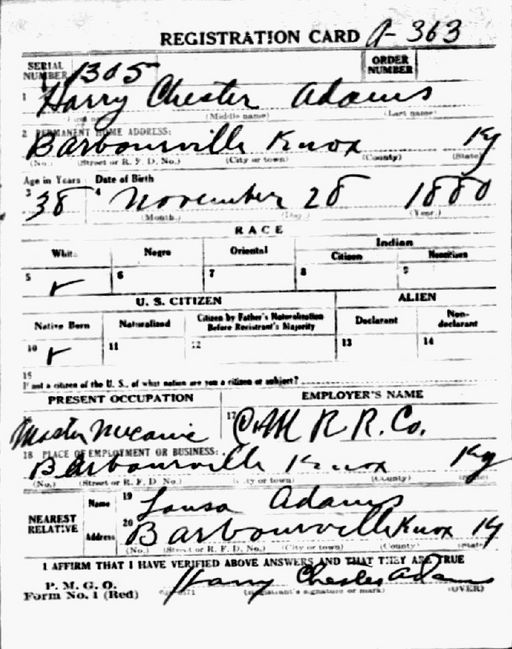 REGISTRATION CARD A-363
SERIAL NUMBER 1305 ORDER NUMBER
1 Harry Chester Adams
(Middle name) (Last name)
2 PERMANENT HOME ADDRESS:
Barbourville Knox Ky
(No.) (Street or R. F. D. No.) (City or town) (County) (State)
Age in Years Date of Birth
3 38 November 28 1880
(Month.) (Day.) (Year.)
RACE
White Negro Oriental Indian
Citizen Noncitizen
5 ✓ 6 7 8 9
U. S. CITIZEN ALIEN
Native Born Naturalized Citizen by Father's Naturalization Before Registrant's Majority Declarant Non-declarant
10 ✓ 11 12 13 14
15
If not a citizen of the U. S., of what nation are you a citizen or subject?
PRESENT OCCUPATION EMPLOYER'S NAME
Master Mecanic 17 R R. Co.
18 PLACE OF EMPLOYMENT OR BUSINESS:
Barbourville Knox Ky
(No.) (Street or R. F. D. No.) (City or town) (County) (State)
NEAREST RELATIVE Name 19 Adams
Address 20 Barbourville Knox Ky
(No.) (Street or R. F. D. No.) (City or town) (County) (State)
I AFFIRM THAT I HAVE VERIFIED ABOVE ANSWERS AND THAT THEY ARE TRUE
P. M. G. O.
Form No. 1 (Red) Harry Chester Adams
(Registrant's signature or mark) (OVER)